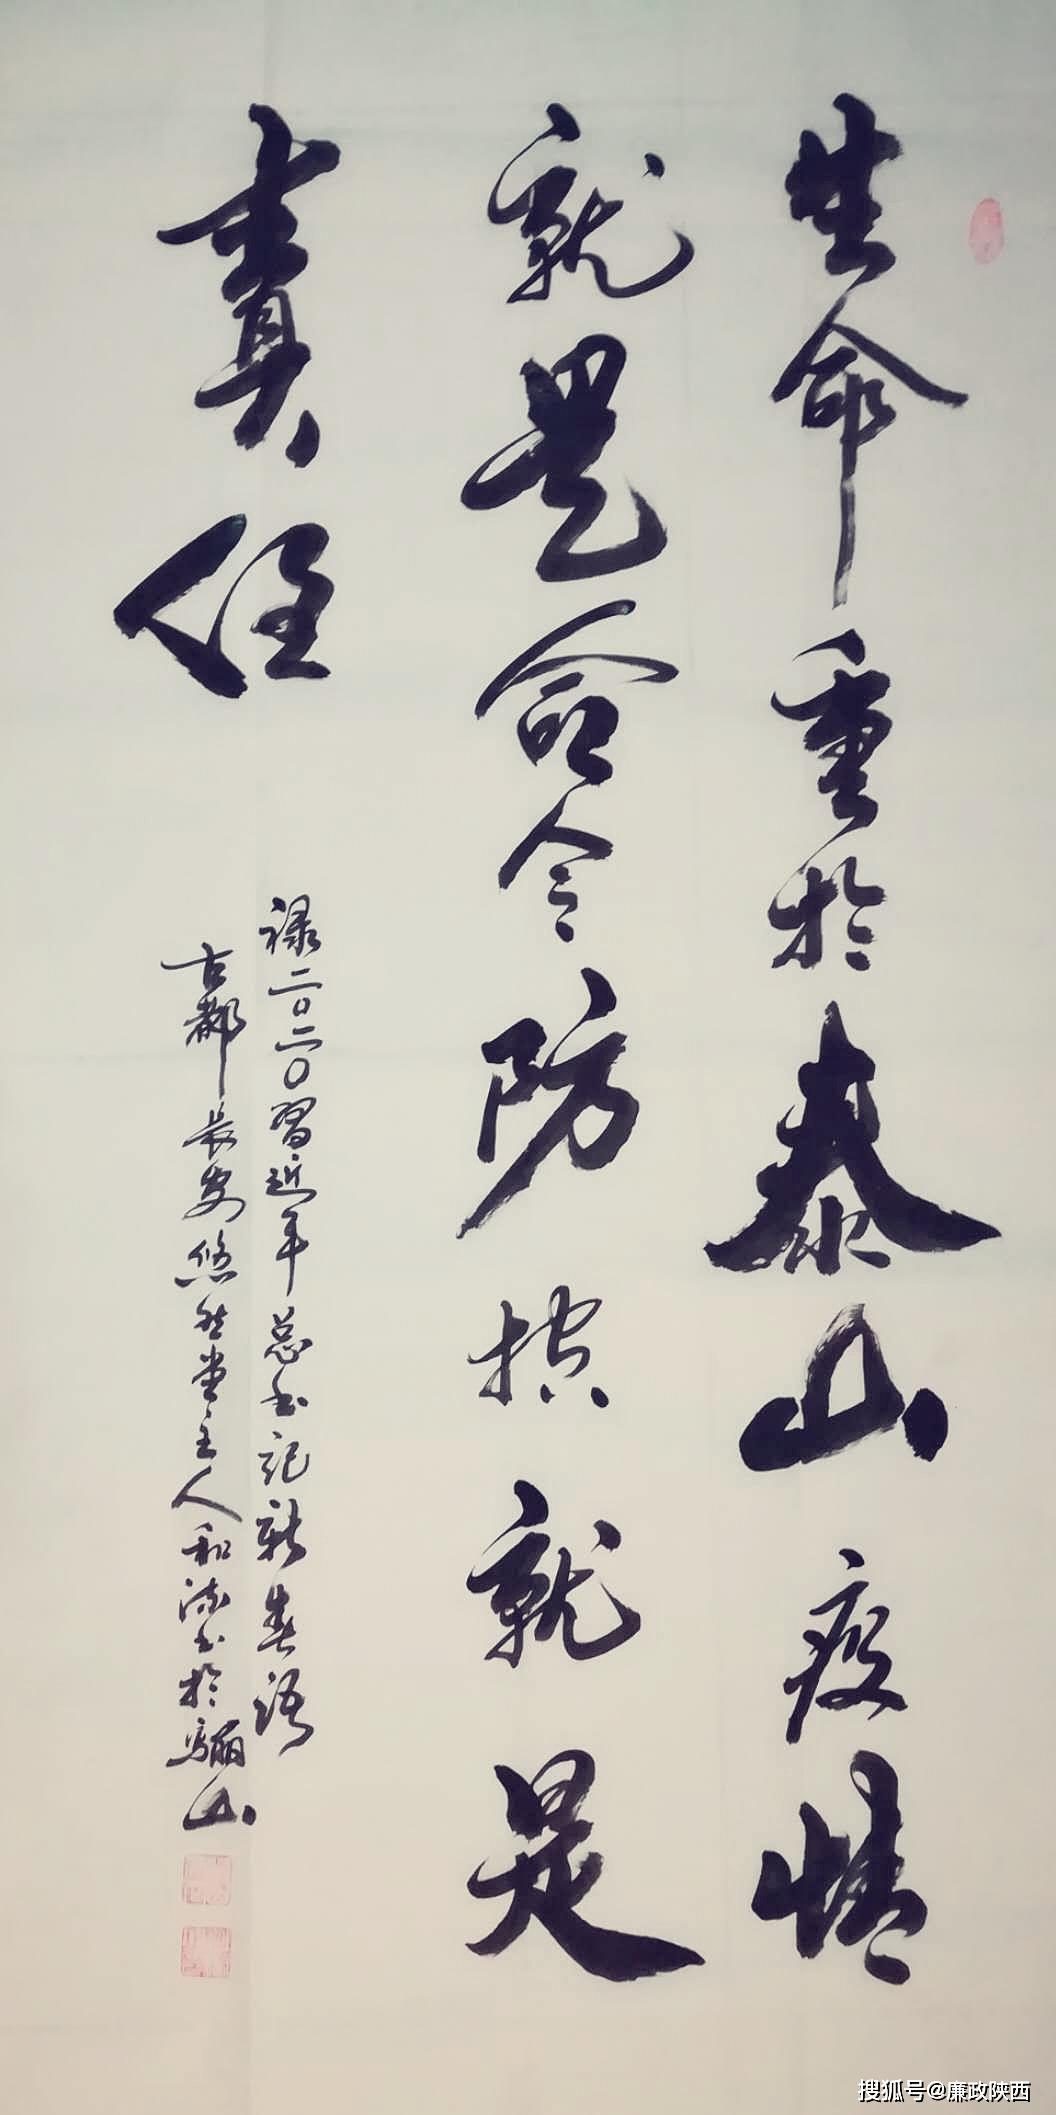 生命重於泰山疫情
就是命令防控就是
責任
禄二〇二〇習近平总书记新春语
古都长安悠然堂主人和流书於骊山
搜狐号@廉政陕西